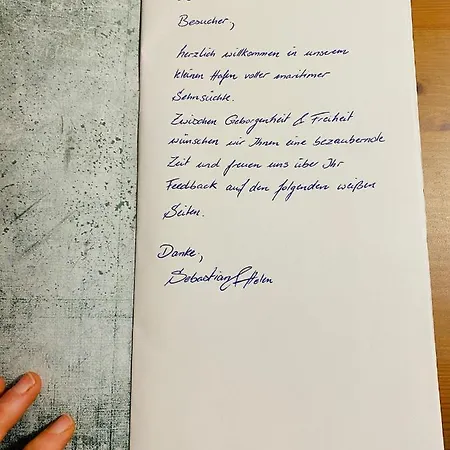 Besucher,
herzlich willkommen in unserem
kleinen Hafen voller maritimer
Sehnsüchte.
Zwischen Geborgenheit & Freiheit
wünschen wir Ihnen eine bezaubernde
Zeit und freuen uns über Ihr
Feedback auf den folgenden weißen
Seiten.
Danke,
Sebastian & Helen